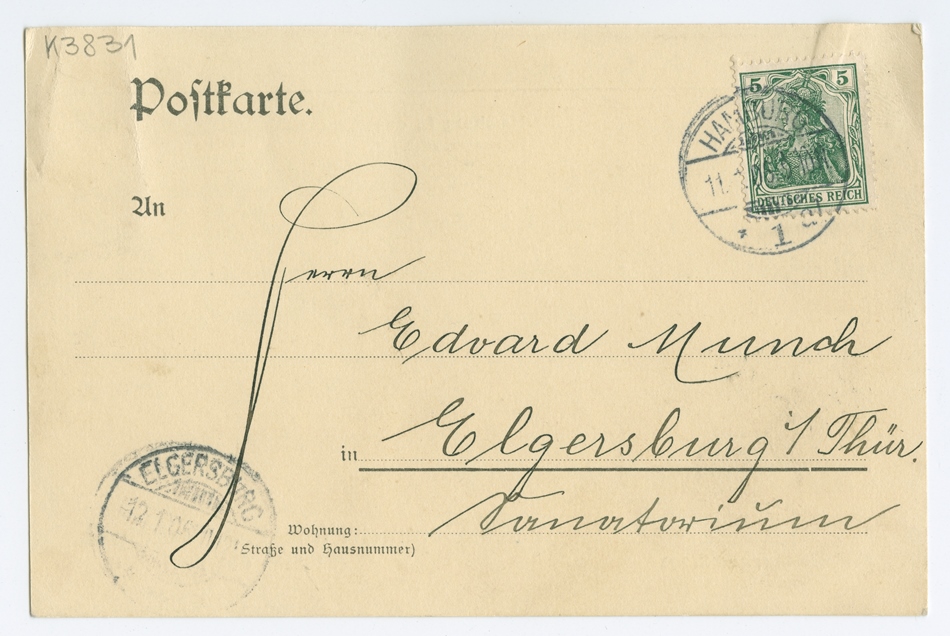 K3831
Postkarte.
5 5
DEUTSCHES REICH
HAMBURG
1
An
Herrn
Edvard Munch
in Elgersburg i/ Thür.
Sanatorium
Wohnung:
(Straße und Hausnummer)
ELGERSBURG
12.1.06